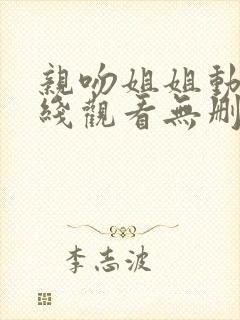 親吻姐姐動
綫觀看無刪
李志波